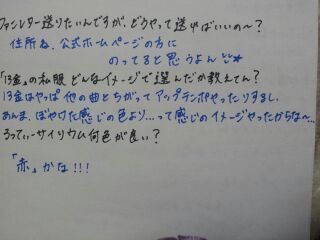 ファンレター送りたいんですが、どうやって送ればいいの〜?
住所ね、公式ホームページの方に
のってると思うよん
「13金」の私服どんなイメージで選んだか教えてん?
13金はやっぱ他の曲とちがってアップテンポやったりするし、
あんま、ぼやけた感じの色より…って感じのイメージやったからな〜…
ろってぃーサイリウム何色が良い?
「赤」かな!!!